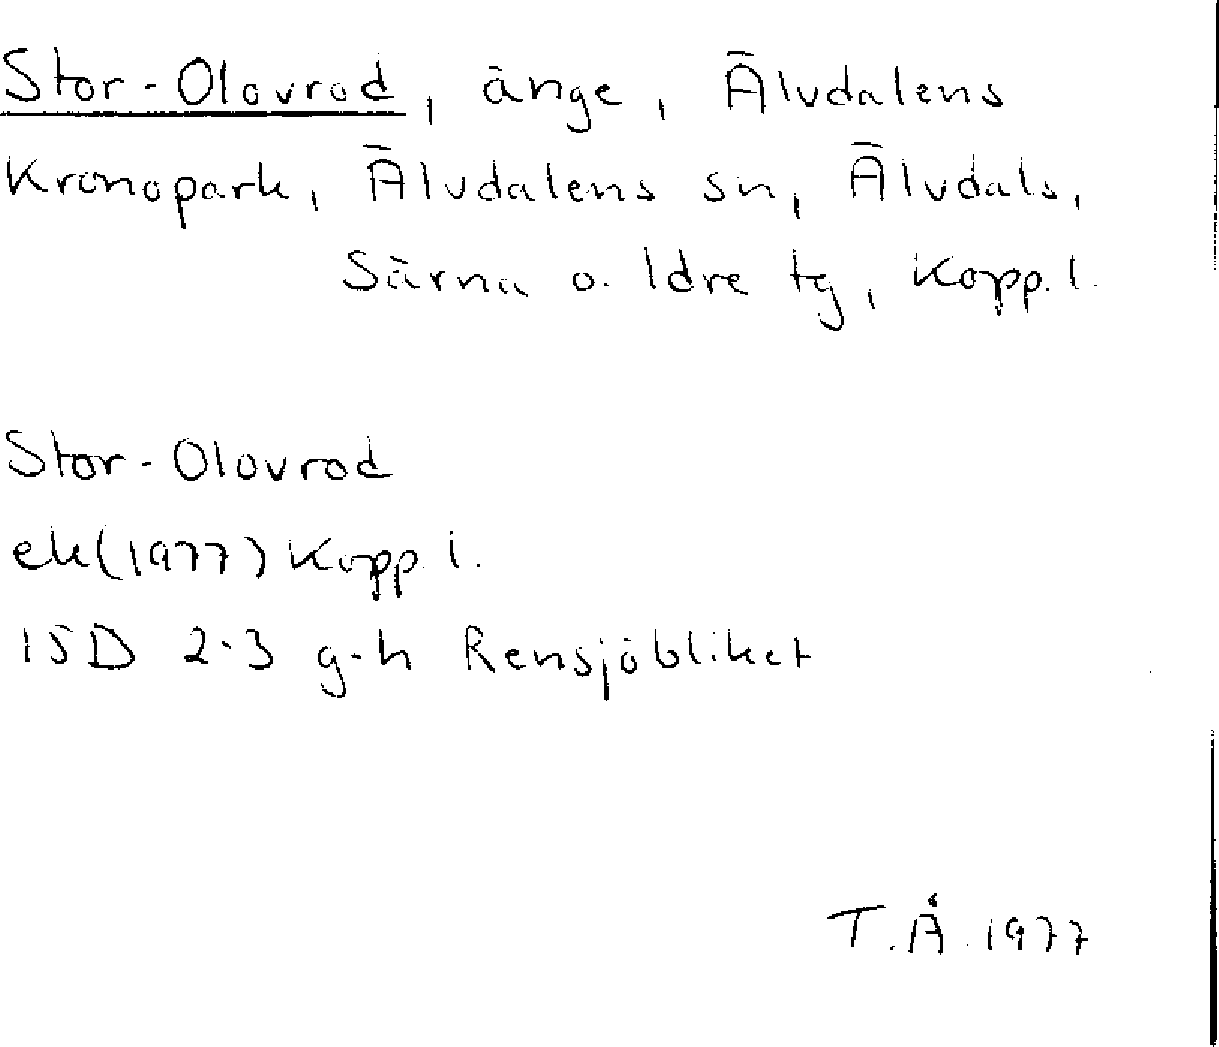 Stor-Olovrod, änge, Älvdalens
Kronopark, Älvdalens sn, Älvdals,
Särna o. Idre tg, Kopp. l.
Stor-Olovrod
ek(1977) Kopp l.
15D 2-3 g-h Rensjöbliket
T.Å. 1977